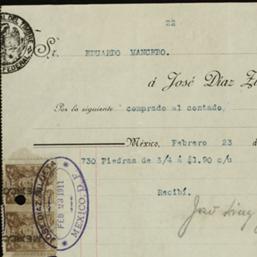 22
Sr. EDUARDO MANCEBO.
á José Díaz
Por la siguiente comprado al contado,
México, Febrero 23 d
730 Piedras de 3/4 á $1.90 c/u
Recibí.
JOSE DIAZ
FEB 23 1911
MEXICO, D.F.